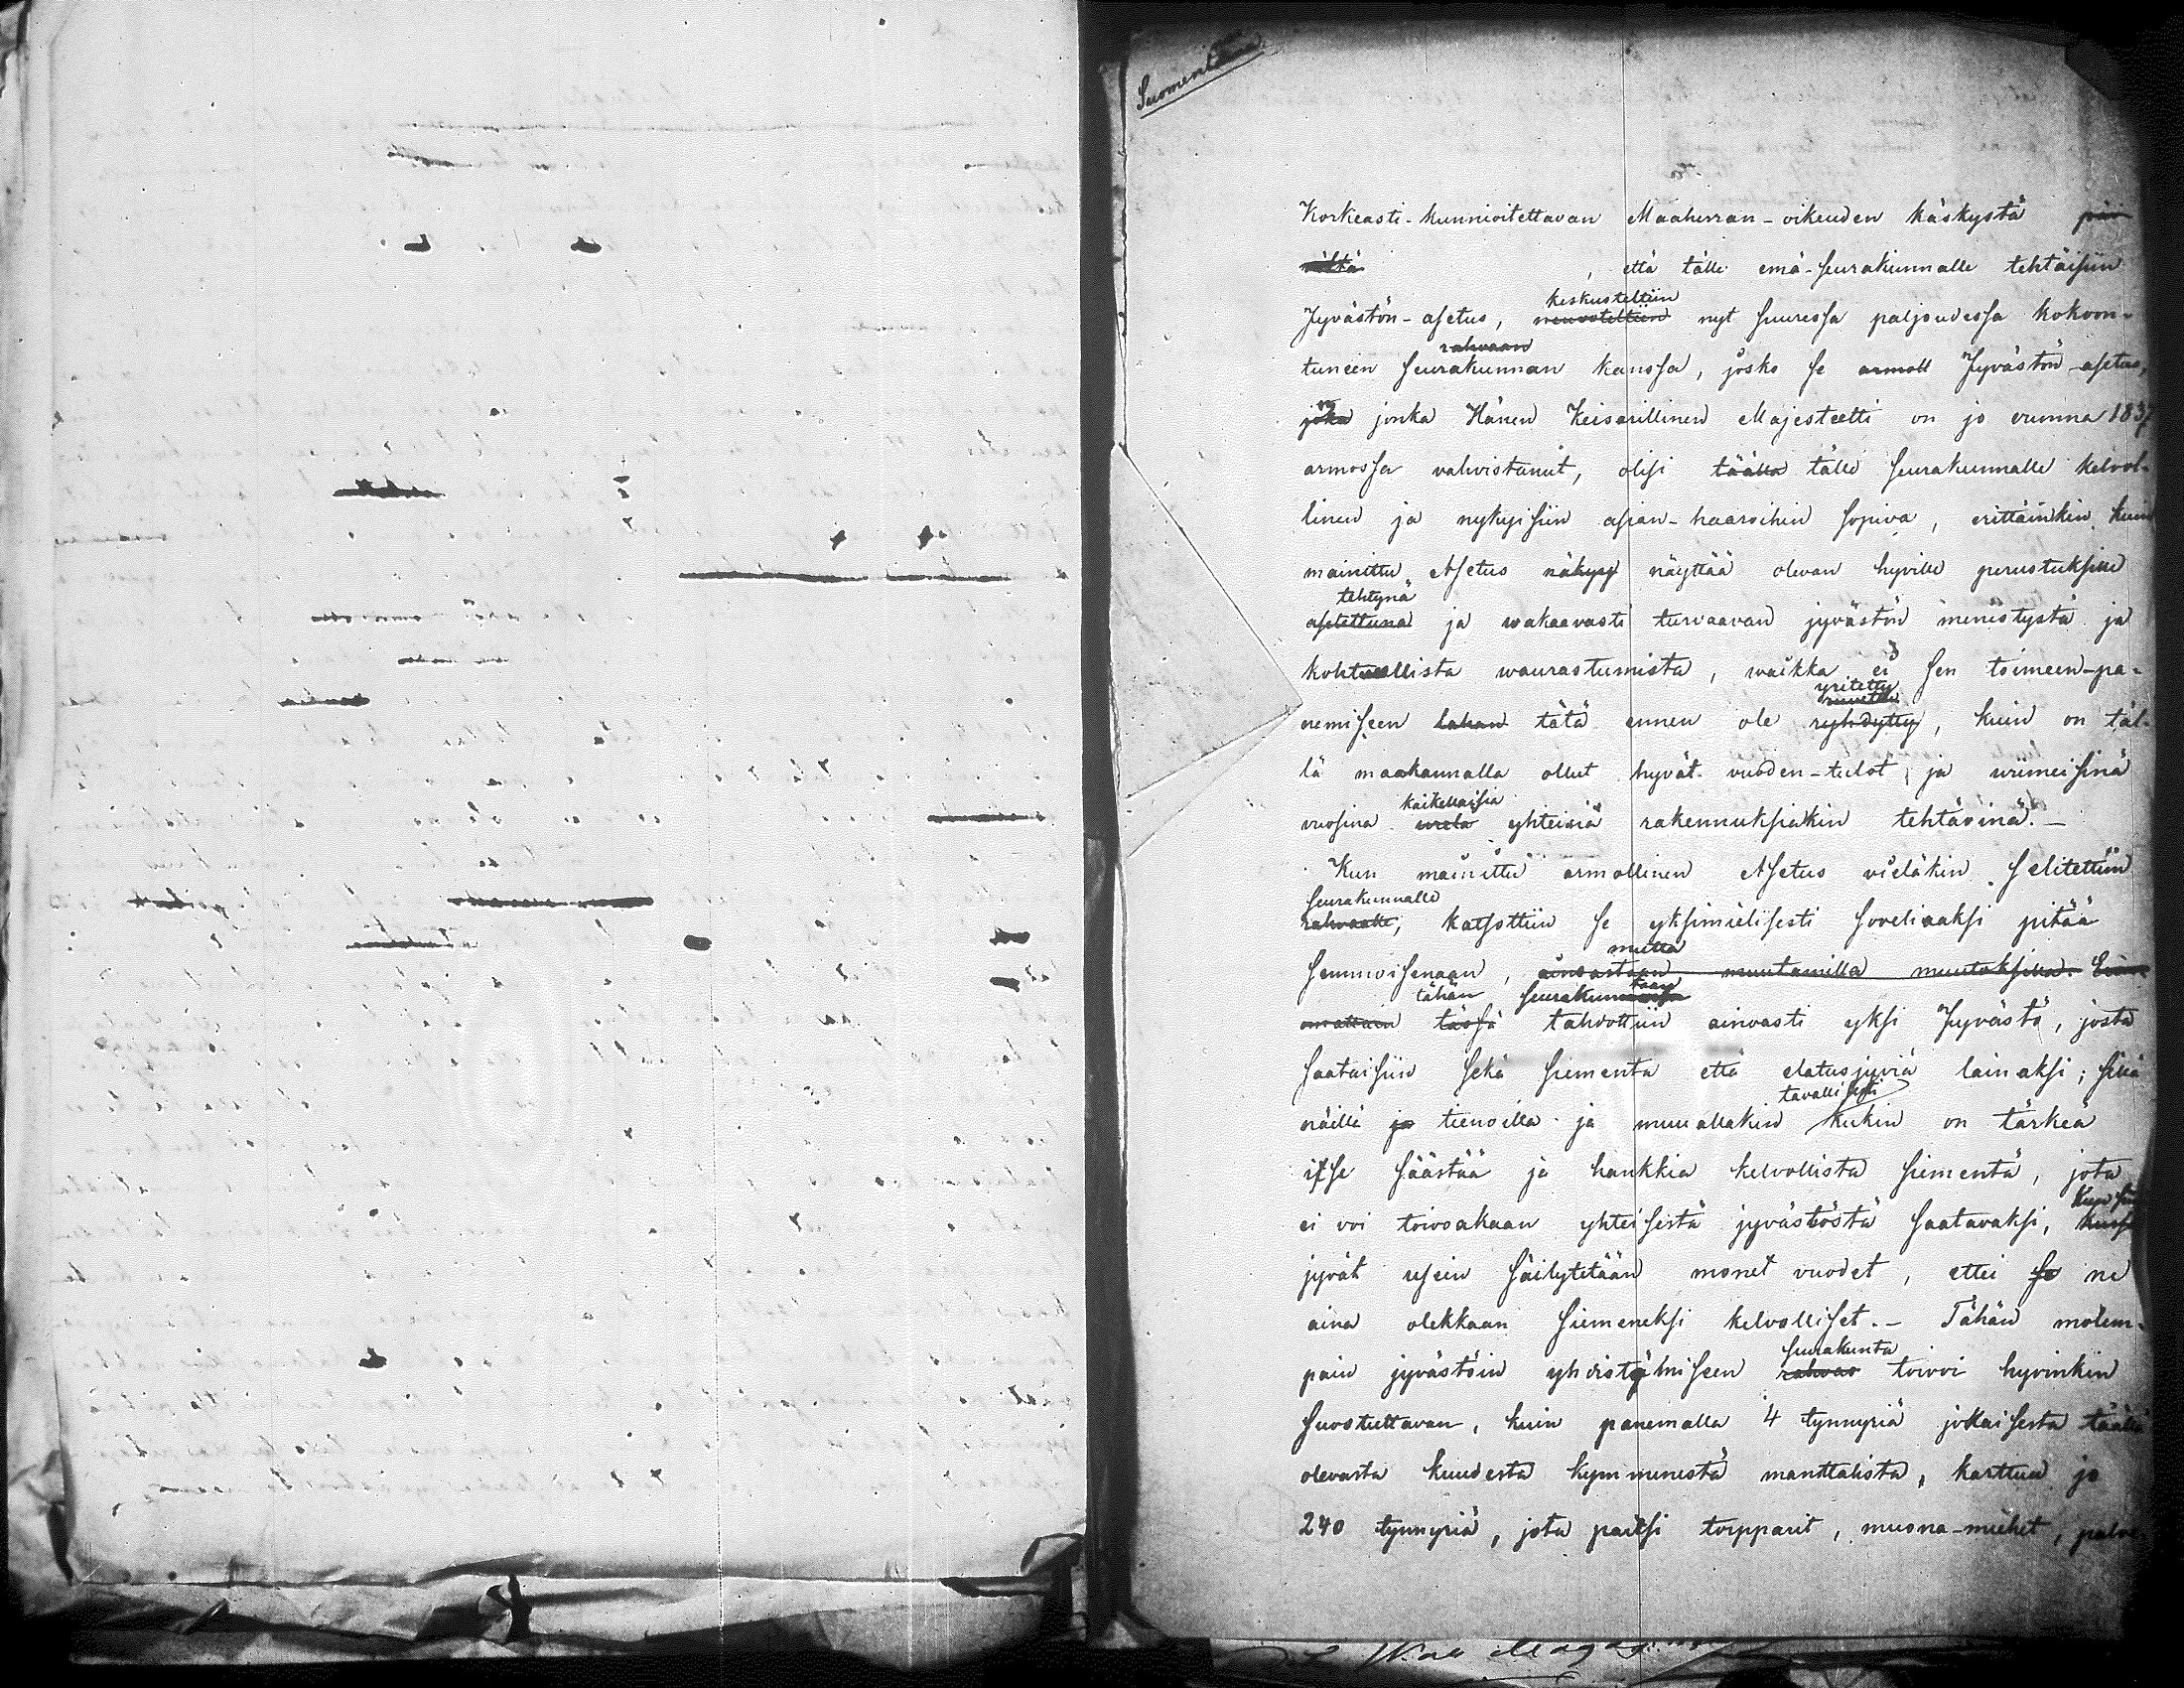 Suomennus
Korkeasti-kunnioitettavan Maaherran-oikeuden käskystä päi
vältä , että tälle emä-seurakunnalle tehtäisiin
keskusteltiin
Jyvästön-asetus, neuvoteltiin nyt suuressa paljoudessa kokoon-
rahvaan
tuneen seurakunnan kanssa, josko se armoll Jyvästön-asetus,
joka jonka Hänen Keisarillinen Majesteetti on jo vuonna 1837
armossa vahvistanut, olisi täällä tälle seurakunnalle kelvol-
linen ja nykyisiin asian-haaroihin sopiva, erittäinkin kuin
mainittu Asetus näkyy näyttää olevan hyville perustuksille
tehtynä
asetettuna ja wakaavasti turvaavan jyvästön menestystä ja
kohtuullista waurastumista, waikka ei sen toimeen-pa-
yritetty
ruvettu
nemiseen tätä ennen ole ryhdytty, kuin on täl-
lä maakunnalla ollut hyvät vuoden-tulot ja wiimeisinä
kaikellaisia
vuosina wielä yhteisiä rakennuksiakin tehtävinä.-
Kun mainittu armollinen Asetus vieläkin selitettiin
seurakunnalle
rahvaalle, katsottiin se yksimielisesti soveliaaksi pitää
mutta
semmoisenaan, ainoastaan muutamilla muutoksilla.
tähän seurakuntaan
omattaen tässä tahdottiin ainoasti yksi Jyvästö, josta
saataisiin sekä siementä että elatusjyviä lainaksi; sillä
tavallisesti
näillä ja tienoilla ja muuallakin kukin on tärkeä
itse säästää ja hankkia kelvollista siementä, jota
kun sii
ei voi toivoakaan yhteisestä jyvästöstä saatavaksi, kussa
jyvät usein säilytetään monet vuodet, ettei se ne
aina olekkaan siemeneksi kelvolliset.- Tähän molem-
seurakunta
pain jyvästöin yhdistämiseen rahvas toivoi hyvinkin
suostuttavan, kuin panemalla 4 tynnyriä jokaisesta täällä
olevasta kuudesta kymmenestä manttalista, karttuu jo
240 tynnyriä, jota paitsi torpparit, muona-miehet, palve-